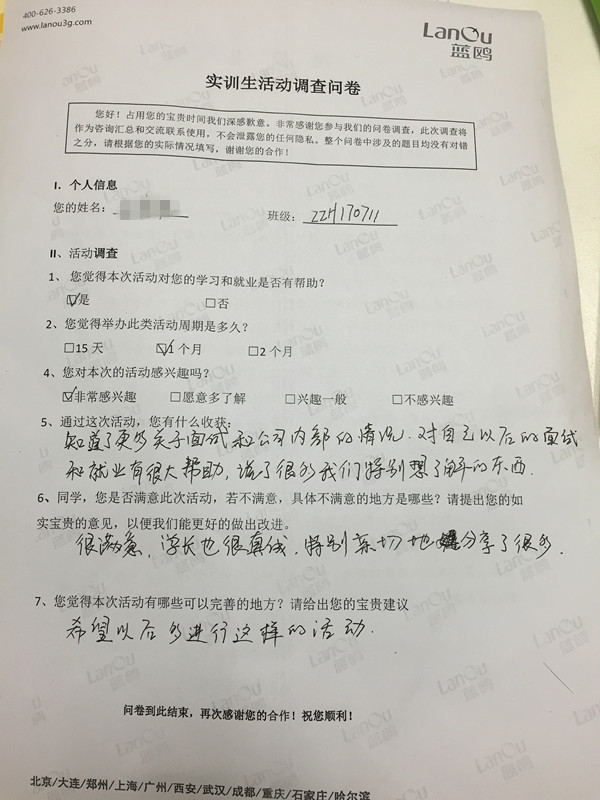 400-626-3386
www.lanou3g.com
LanOu
蓝鸥
实训生活动调查问卷
您好！占用您的宝贵时间我们深感歉意。非常感谢您参与我们的问卷调查，此次调查将
作为咨询汇总和交流联系使用，不会泄露您的任何隐私。整个问卷中涉及的题目均没有对错
之分，请根据您的实际情况填写，谢谢您的合作！
I. 个人信息
您的姓名：
班级：ZZH170711
II、活动调查
1、 您觉得本次活动对您的学习和就业是否有帮助？
☑是 □否
2、您觉得举办此类活动周期是多久？
□15 天 ☑1 个月 □2 个月
4、您对本次的活动感兴趣吗？
☑非常感兴趣 □愿意多了解 □兴趣一般 □不感兴趣
5、通过这次活动，您有什么收获：
知道了更多关于面试和公司内部的情况．对自己以后的面试
和就业有很大帮助，讲了很多我们特别想了解的东西．
6、同学，您是否满意此次活动，若不满意，具体不满意的地方是哪些？请提出您的如
实宝贵的意见，以便我们能更好的做出改进。
很满意，学长也很真诚，特别亲切地分享了很多．
7、您觉得本次活动有哪些可以完善的地方？请给出您的宝贵建议
希望以后多进行这样的活动．
问卷到此结束，再次感谢您的合作！祝您顺利！
北京/大连/郑州/上海/广州/西安/武汉/成都/重庆/石家庄/哈尔滨